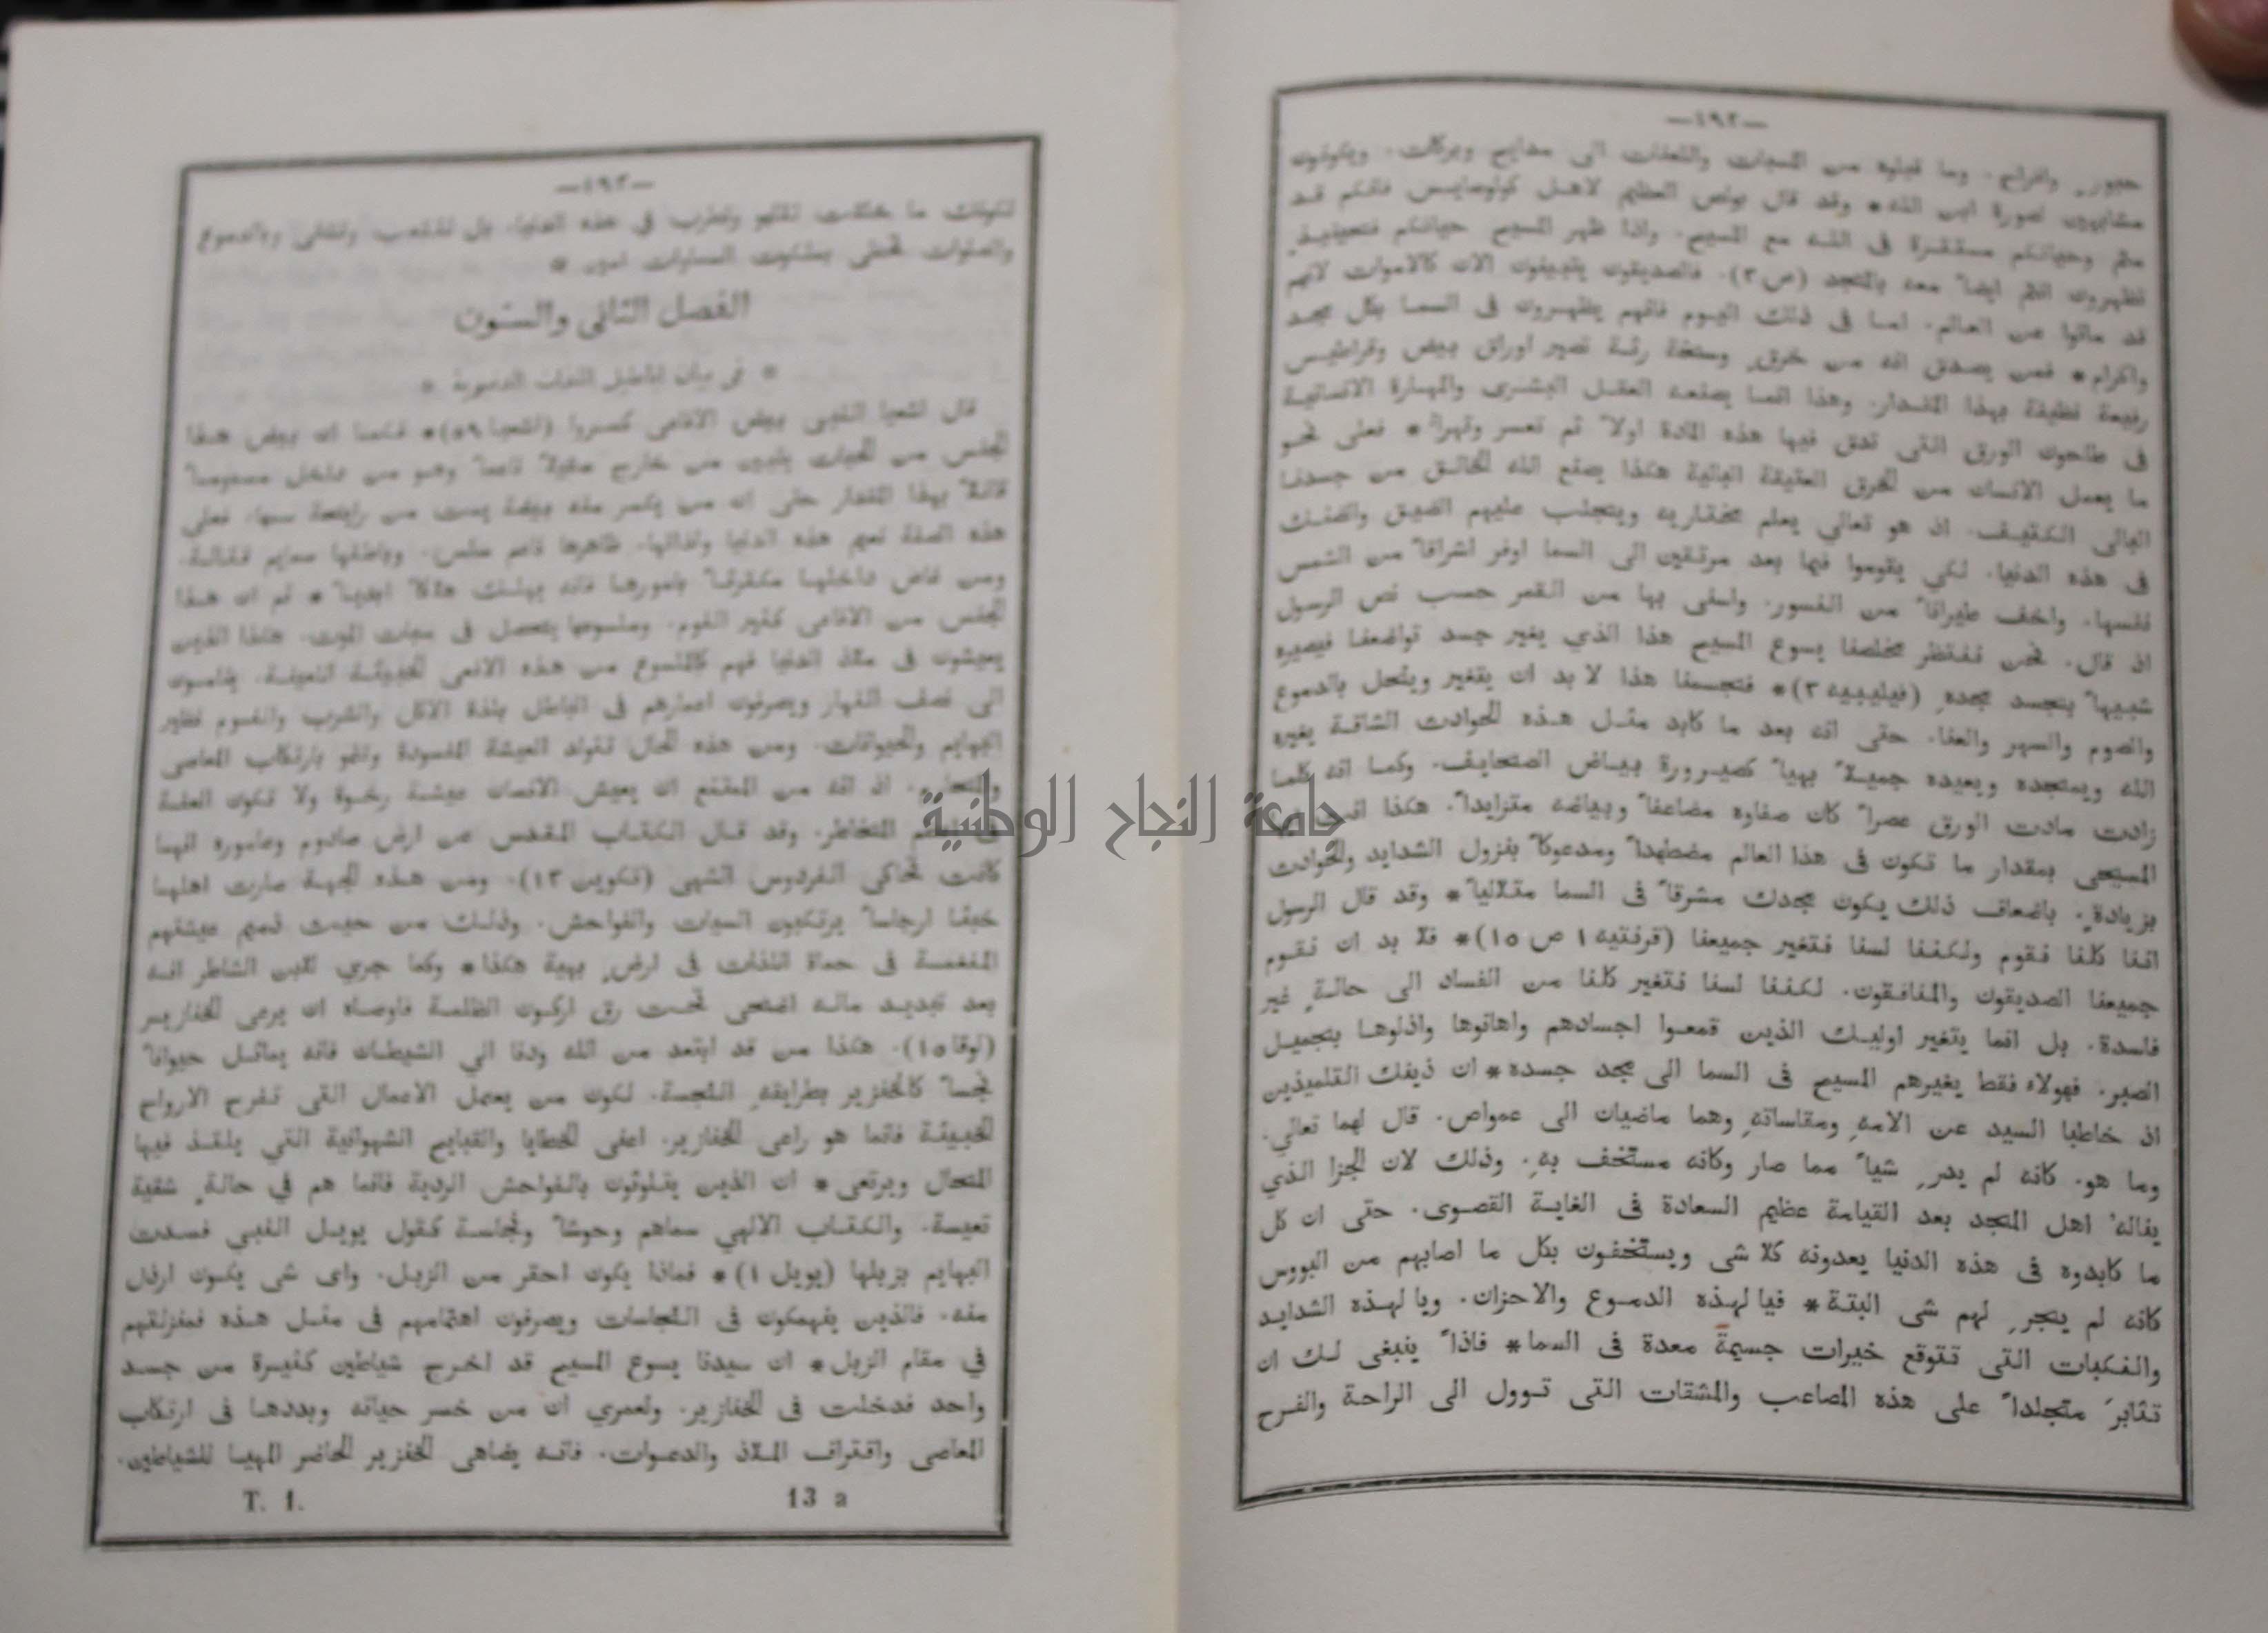 —١٩٢—
حبور وافراح. وما قبلوه من السبات واللعنات الى مدايح وبركات. ويكونون
مشابهين لصورة ابن الله* وقد قال بولص العظيم لاهل كولوصايس فانكم قد
متم وحياتكم مستترة فى الله مع المسيح. واذا ظهر المسيح حياتكم فحينيذٍ
تظهرون انتم ايضاً معه بالمجد (ص ٣). فالصديقون يتبينون الان كالاموات لانهم
قد ماتوا عن العالم. اما فى ذلك اليوم فانهم يظهرون فى السما بكل مجد
واكرام* فمن يصدق انه من خرقٍ وسخة رثة تصير اوراق بيض وقراطيس
رفيعة نظيفة بهذا المقدار. وهذا انما يصنعه العقل البشرى والمهارة الانسانية
فى طاحون الورق التى تدق فيها هذه المادة اولاً ثم تعسر وتهرأ* فعلى نحو
ما يعمل الانسان من الخرق العتيقة البالية هكذا يصنع الله الخالق من جسدنا
البالى الكثيف. اذ هو تعالى يعلم مختاريه ويجلب عليهم الضيق والضنك
فى هذه الدنيا. لكي يقوموا فيما بعد مرتقين الى السما اوفر اشراقاً من الشمس
نفسها. واخف طيراناً من النسور. واسنى بها من القمر حسب نص الرسول
اذ قال. نحن ننتظر مخلصنا يسوع المسيح هذا الذي يغير جسد تواضعنا فيصيره
شبيهاً بجسد مجدهِ (فيليبيه ٣)* فجسمنا هذا لا بد ان يتغير وينحل بالدموع
والصوم والسهر والعنا. حتى انه بعد ما كابد مثل هذه الحوادث الشاقة يغيره
الله ويمجده ويعيده جميلاً بهياً كصيرورة بياض الصحايف. وكما انه كلما
زادت مادت الورق عصراً كان صفاوه مضاعفاً وبياضه متزايداً. هكذا
المسيحى بمقدار ما تكون فى هذا العالم مضطهداً ومدعوكاً بنزول الشدايد والحوادث
بزيادةٍ. باضعاف ذلك يكون مجدك مشرقاً فى السما متلالياً* وقد قال الرسول
اننا كلنا نقوم ولكننا لسنا نتغير جميعنا (قرنتيه ١ ص ١٥)* فلا بد ان نقوم
جميعنا الصديقون والمنافقون. لكننا لسنا نتغير كلنا من الفساد الى حالةٍ غير
فاسدة. بل انما يتغير اوليك الذين قمعوا اجسادهم واهانوها واذلوها بتجميل
الصبر. فهولاء فقط يغيرهم المسيح فى السما الى مجد جسده* ان ذينك التلميذين
اذ خاطبا السيد عن الامهِ ومقاساتهِ وهما ماضيان الى عمواص. قال لهما تعالى.
وما هو. كانه لم يدرِ شياً مما صار وكانه مستخف بهِ. وذلك لان الجزا الذي
يناله اهل المجد بعد القيامة عظيم السعادة فى الغاية القصوى. حتى ان كل
ما كابدوه فى هذه الدنيا يعدونه كلا شى ويستخفون بكل ما اصابهم من البووس
كانه لم يجرِ لهم شى البتة* فيا لهذه الدموع والاحزان. ويا لهذه الشدايد
والنكبات التى تتوقع خيرات جسيمةً معدة فى السما* فاذاً ينبغى لك ان
تثابرَ متجلداً على هذه المصاعب والمشقات التى توول الى الراحة والفرح
—١٩٣—
لتكونك ما خلقت لتلهو وتطرب في هذه الدنيا. بل لتتعب وتشقى وبالدموع
والصلوات تحظى بمشاهدة السماويات امين *
الفصل الثانى والستون
* فى بيان اباطيل اللذات الدنيوية *
قال اشعيا النبى بيض الافاعى كسروا (اشعيا ٥٩)* فكما ان بيض هذا
الجنس من الحيات يتبين من خارج صقيلاً ناعماً وهو من داخل مسموماً
قاتلاً بهذا المقدار حتى ان من يكسر منه بيضة يمت من رايحة سمها. فعلى
هذه الصفة نعيم هذه الدنيا ولذاتها. ظاهرها ناعم سلس. وباطنها سمايم قتالة.
ومن خاض داخلها مكترثاً بامورها فانه يهلك هلاكاً ابدياً* ثم ان هذا
الجنس من الافاعى كثير النوم. وملسوعها يتحصل فى سبات الموت. هكذا الذين
يعيشون فى ملاذ الدنيا فهم كالملسوع من هذه الافعى الخبيثة اللعينة. ينامون
الى نصف النهار ويصرفون اعمارهم فى الباطل بلذة الاكل والشرب والنوم نظير
البهايم والحيوانات. ومن هذه الحال تتولد العيشة المفسودة وتنمو بارتكاب المعاصى
اذ انه من الممتنع ان يعيش الانسان عيشة رخوة ولا تكون العفة
المخاطر. وقد قال الكتاب المقدس عن ارض صادوم وعامورة انهما
كانت تحاكى الفردوس الشهى (تكوين ١٣). ومن هذه الجهة صارت اهلها
خبثا ارجاساً يرتكبون السيات والفواحش. وذلك من حيث نعيم عيشتهم
المنغمسة فى حماة اللذات فى ارضٍ بهية هكذا* وكما جري للابن الشاطر انه
بعد تبديد ماله اضحى تحت رق اركون الظلمة فاوصاه ان يرعى الخنازير
(لوقا ١٥). هكذا من قد ابتعد من الله ودنا الي الشيطان فانه يماثل حيواناً
نجساً كالخنزير بطرايقهِ النجسة. لكون من يعمل الاعمال التى تفرح الارواح
الخبيثة فانما هو راعى الخنازير. اعنى الخطايا والقبايح الشهوانية التي يلتذ فيها
المحال ويرتعى* ان الذين يتلوثون بالفواحش الردية فانما هم في حالةٍ شقية
تعيسة. والكتاب الالهي سماهم وحوشاً ونجاسة كقول يويل النبي فسدت
البهايم بزبلها (يويل ١)* فماذا يكون احقر من الزبل. واى شى يكون ارذل
منه. فالذين ينهمكون فى النجاسات ويصرفون اهتمامهم فى مثل هذه فمنزلتهم
في مقام الزبل* ان سيدنا يسوع المسيح قد اخرج شياطين كثيرة من جسد
واحد فدخلت فى الخنازير. ولعمري ان من خسر حياته وبددها فى ارتكاب
المعاصى واقتراف الملاذ والدعوات. فانه يضاهى الخنزير الحاضر المهيا للشياطين.
T. 1. 13 a
جامعة النجاح الوطنية